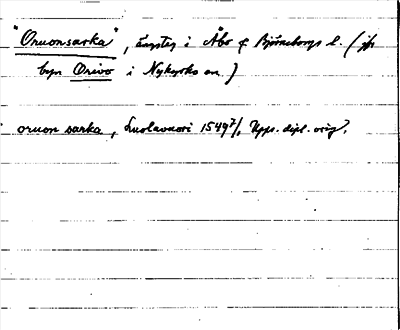 "Oruonsarka", i Åbo o Björneborgs l. (jfr
byn Orivo i Nykyrko sn.)
oruon sarka, Luolavuori 1549 7/, Upps. dipl. orig.